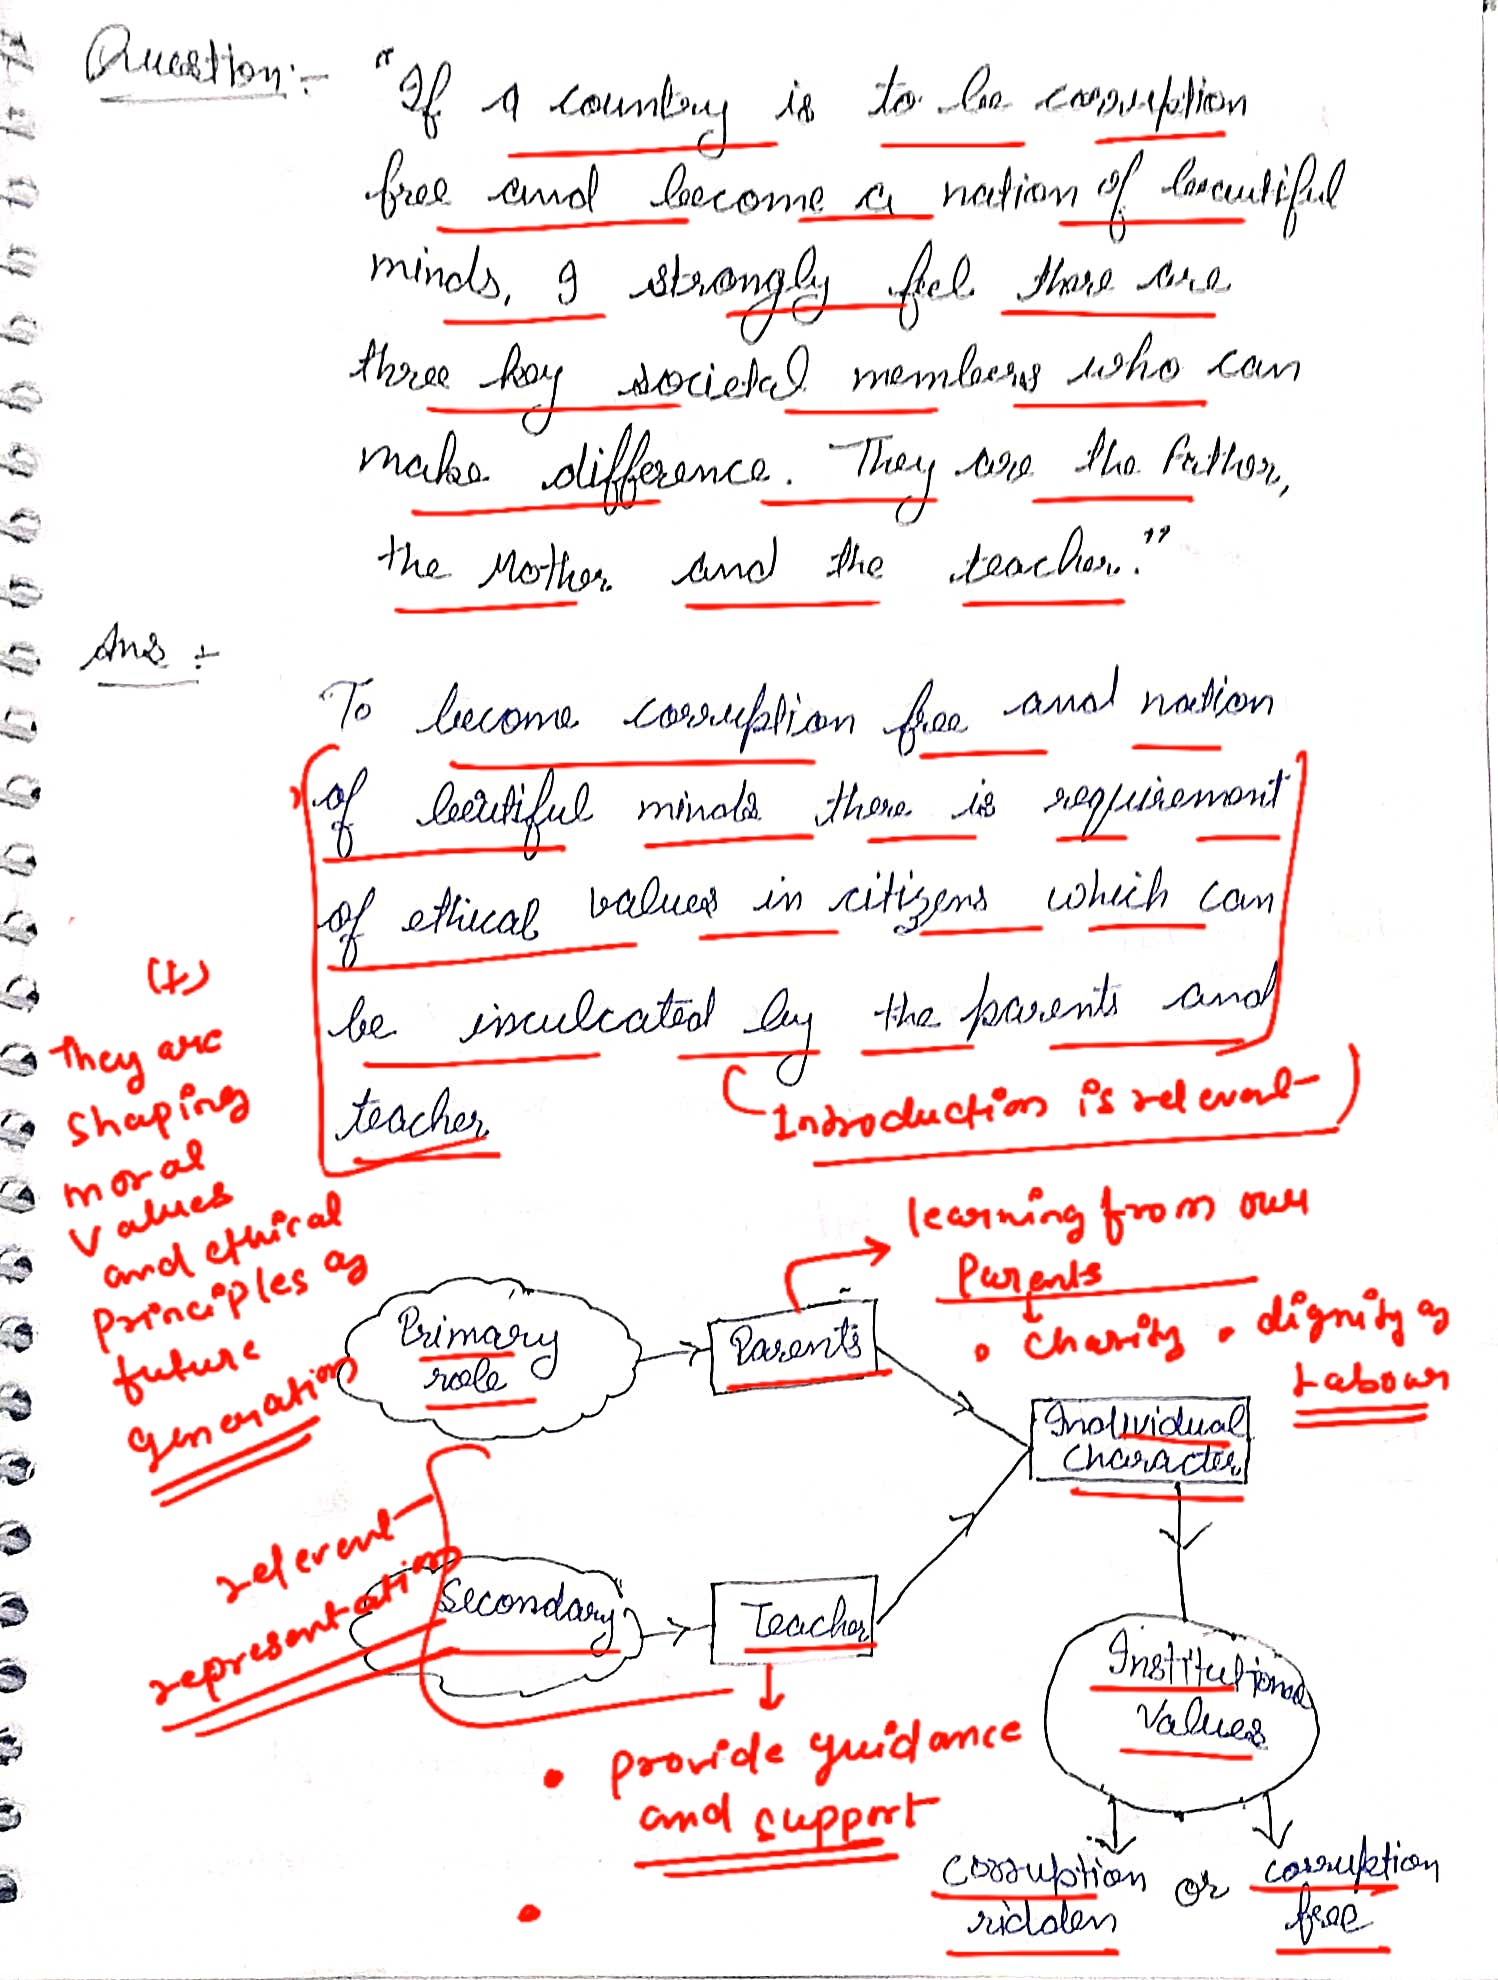 Question:- "If a country is to be corruption
free and become a nation of beautiful
minds, I strongly feel there are
three key societal members who can
make difference. They are the Father,
the Mother and the teacher."
Ans :-
To become corruption free and nation
of beutiful minds there is requirement
of ethical values in citizens which can
be inculcated by the parents and
teacher
(Introduction is relevant)
(+)
They are
shaping
moral
values
and ethical
Principles of
future
generation
learning from our
Parents
• Charity • dignity of
Labour
Primary
role
Parents
Individual
Character
relevant
representation
Secondary
Teacher
Institutional
Values
• Provide guidance
and support
Corruption
ridden
or
corruption
free